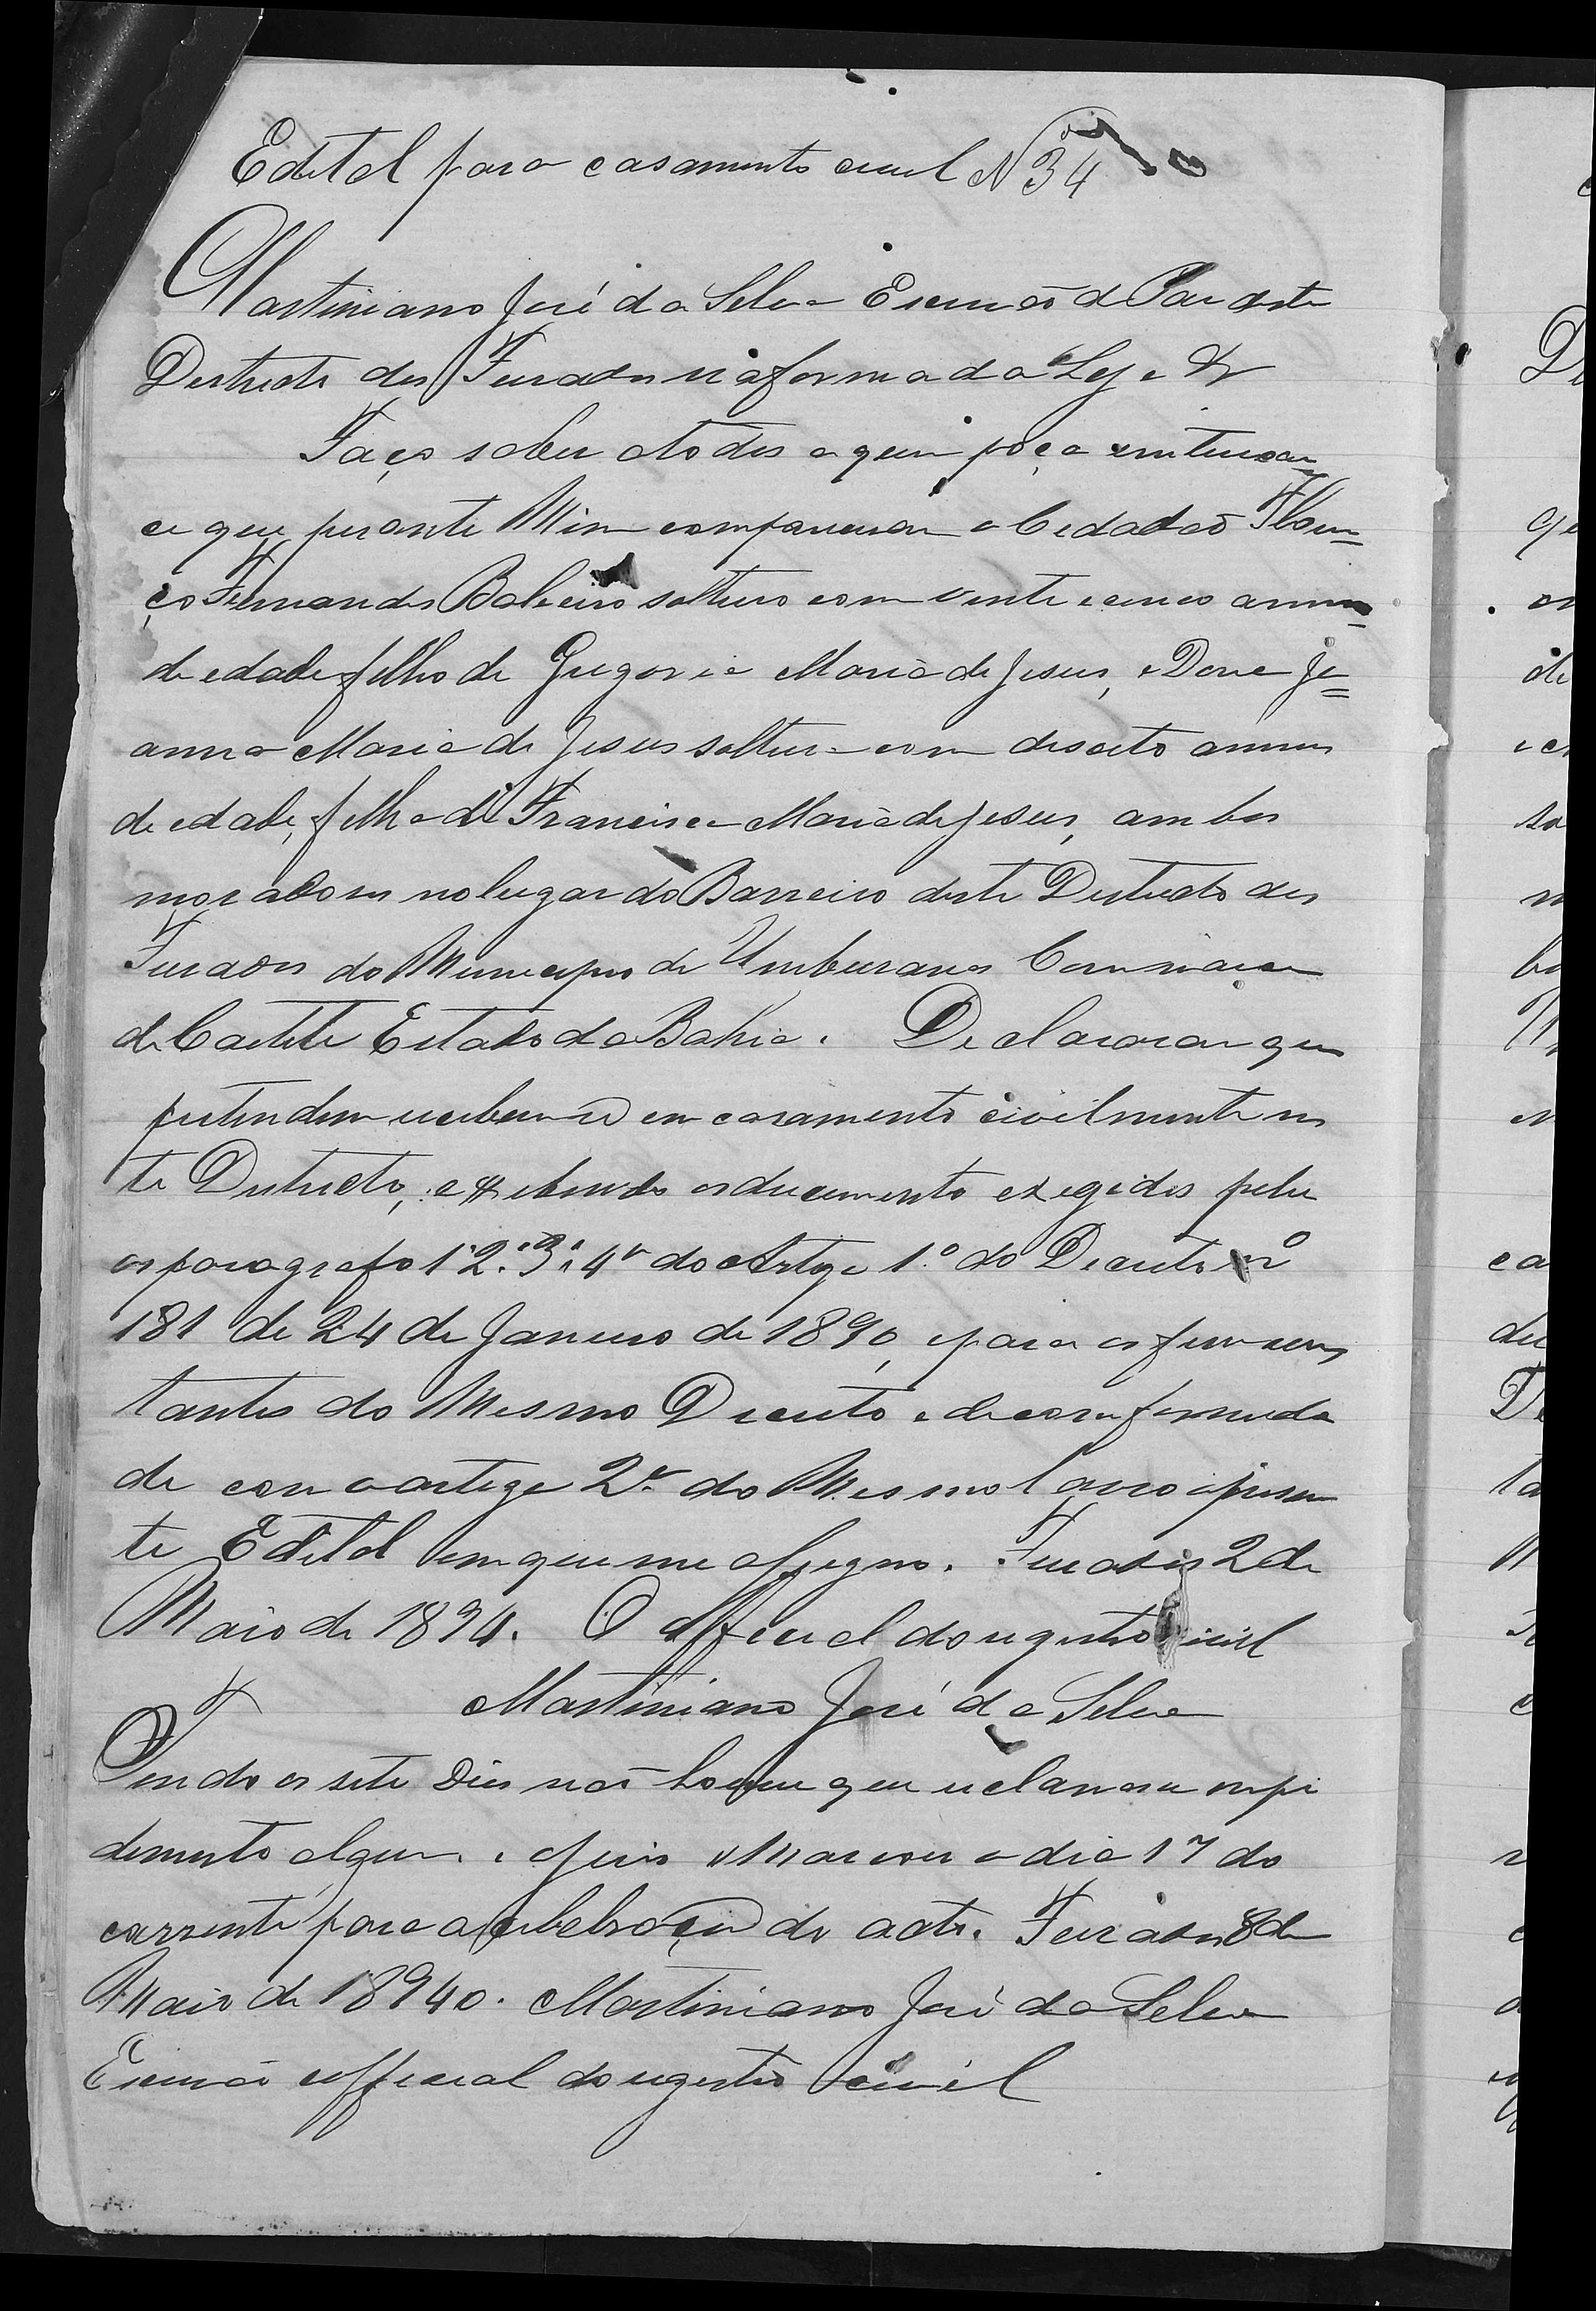 Edital para casamento civil Nº 34
Martiniano José da Silva Escrivaõ de Paz deste
Destricto dos Furados na forma da Lej e &
Faço saber atodos a quem poça entereçar
e que perante Mim compareceram o Cedadaõ
ço Fernandes Baleeiro solteiro com vente e cinco annos
de edade filho de Gregoria Maria de Jesus, e Dona Jo=
anna Maria de Jesus solteira com desoito annos
de edade, filha de Francisca Maria de Jesus, ambos
moradores no lugar do Barreiro deste Destricto dos
Furados do Municipio de Umburanas Comarca
de Caeteté Estado da Bahia. Declararam que
pretendem receberem-se em casamento civilmente nes
te Destricto, exebindo os documento exegidos pelu
os paragrafo 1º 2º 3º 4º do Artigo 1.º do Decreto nº
181 de 24 de Janeiro de 1890, e para os fim cons
tantes do Mesmo Decreto e de comformeda
de com o artego 2º do Mesmo lavro o presen
te Edital em que me assegno. Furados 2 de
Maio de 1894. O Official do registro civil
Martiniano José da Silva
Findo os sete Dias naõ houve quem reclamasse empe
demento algum. o Juis Marcou o dia 17 do
corrente para a celebraçaõ do acto. Furados 8 de
Maio de 1894. Martiniano José da Silva
Escrivaõ e official do registro civil